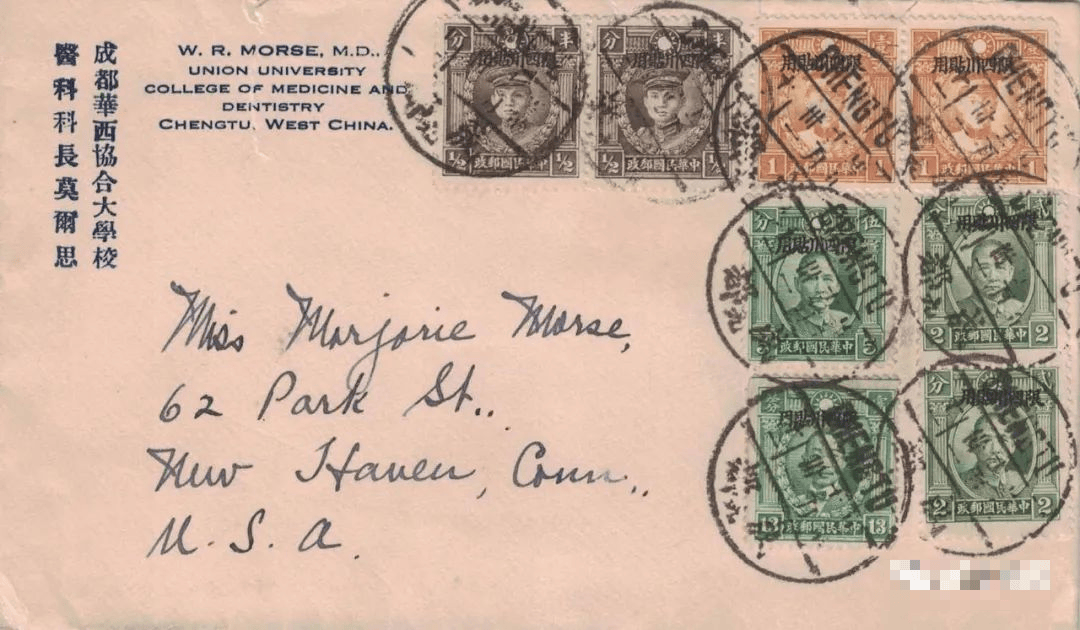 成都華西協合大學校
醫科科長莫爾思
W. R. MORSE, M.D.,
UNION UNIVERSITY
COLLEGE OF MEDICINE AND
DENTISTRY
CHENGTU, WEST CHINA.
Miss Marjorie Morse,
62 Park St.,
New Haven, Conn.,
U. S. A.
半 分
限四川貼用
½ 中華民國郵政 ½
限四川貼用
½ 中華民國郵政 ½
限四川貼用
CHENGTU
1 中華民國郵政 1
限四川貼用
CHENGTU
1 中華民國郵政 1
伍 分
限四川貼用
CHENGTU
5 中華民國郵政 5
限四川貼用
2 中華民國郵政 2
限四川貼用
CHENGTU
13 中華民國郵政 13
分
限四川貼用
CHENGTU
2 中華民國郵政 2